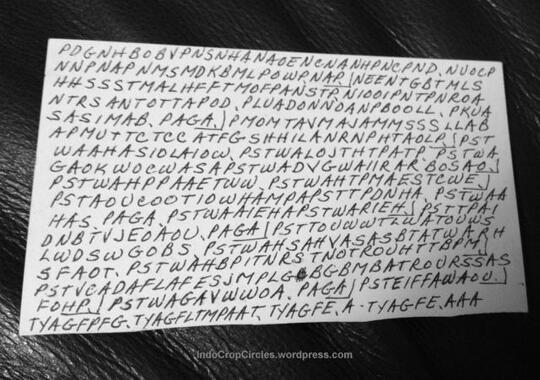 PDGNHBOBVPNSNHANAOENCNANHPNCPND. NUOCP
NNPNAPNMSMDKBMLPOWPNAP. NEENTGBTMLS
HHSSSTMALHFFTMOFPANSTP. NIOOIPNTPNROA
NTRSANTOTTAPOD. PLUADONNOANPBOCLL. PKUA
SASIMAB. PAGA. PMOMTAVMAJAMMSSSLLAB
APMUTTCTCCATFGSHHILANRNPHTAOLP. PST
WAAHASIOLAIOW. PSTWALOJTHTPAT. PSTWA
GAOKWOCWASAPSTWADVGWAIIRAR BOSAO.
PSTWAHPPAAETWW. PSTWAHTPMAESTCWE.
PSTAOUCOOTIOWHAMPAPSTTPONHA. PSTWAA
HAS. PAGA. PSTWAAIEHAPSTWARIEH. PSTTPAI
DNBTVJEOAOU. PAGA. PSTTOUWWTLWATOUWS
LWDSWGOBS. PSTWAHSAHVASASBTATWARH
SFAOT. PSTWAHBPITNRSTNOTROUHTTBPM.
PSTVCADAFLAFESJMPLG BGBMBATROURSSAS
FOHP. PSTWAGAVWWOA. PAGA. PSTEIFFAWAOU.
TYAGFPFG. TYAGFLTMPAAT. TYAGFE. A. TYAGFE. AAA
IndoCropCircles.wordpress.com